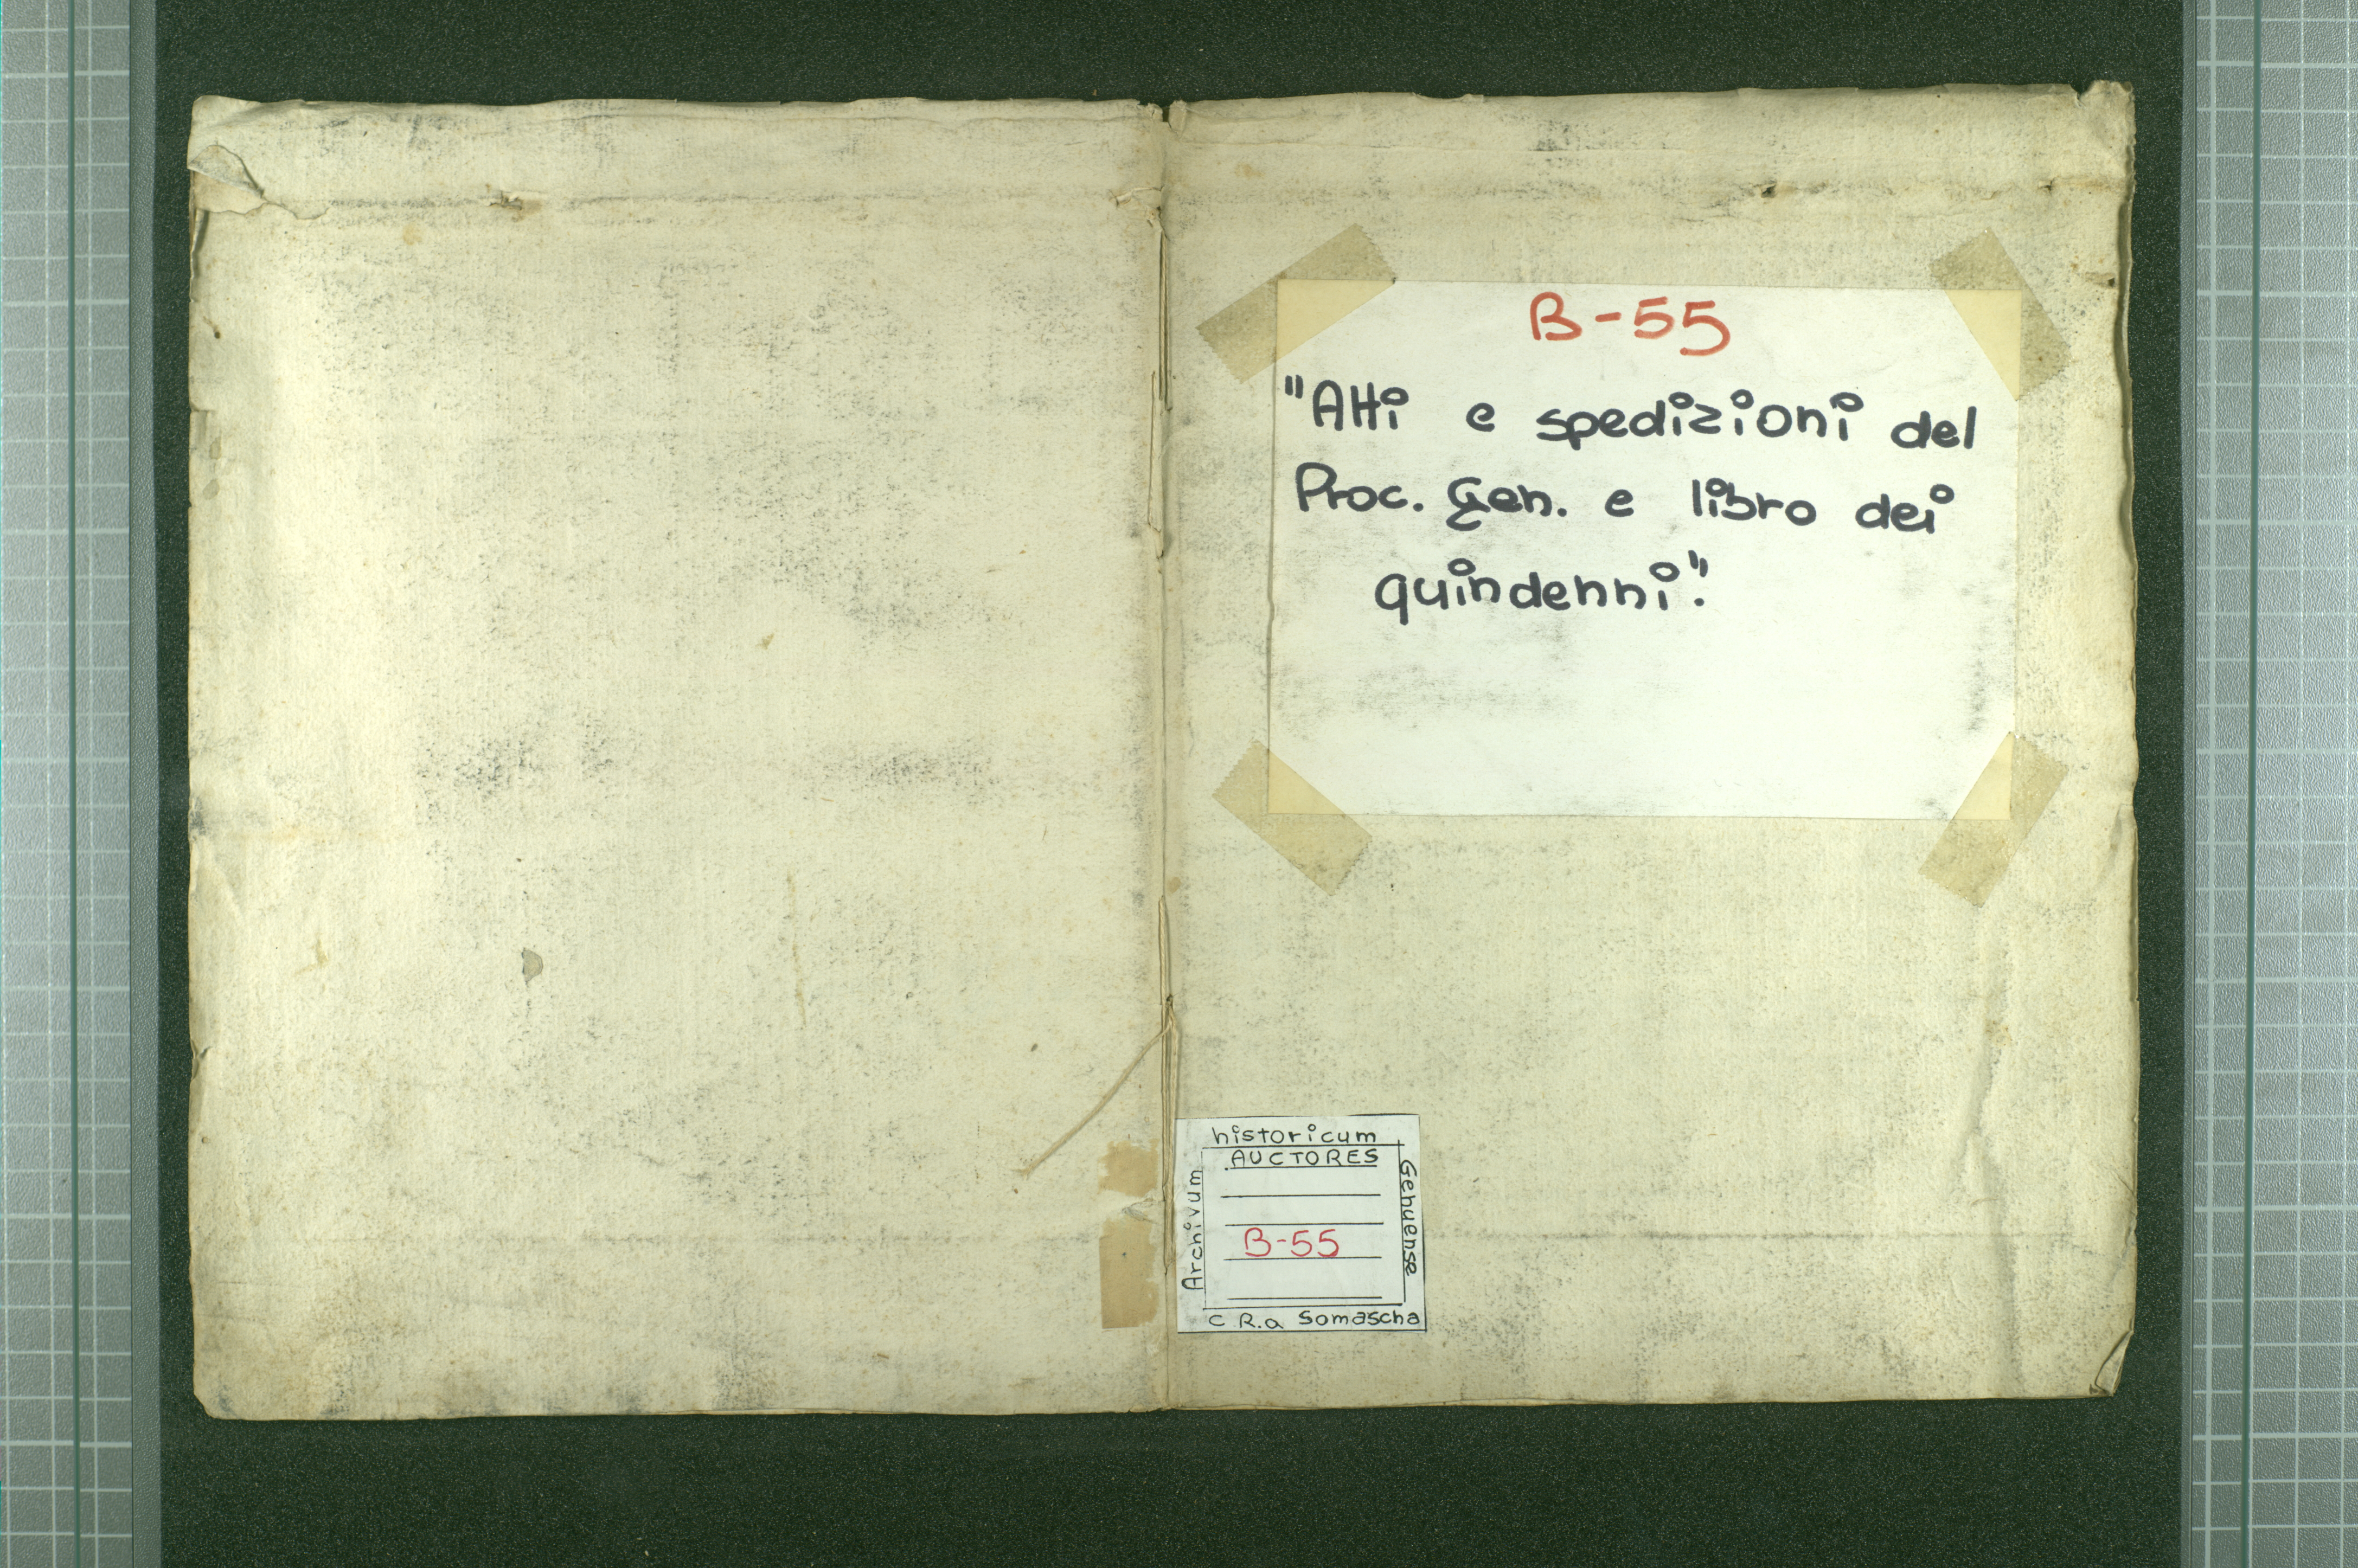 B-55
"Atti e spedizioni del
Proc. Gen. e libro dei
quindenni".
historicum
AUCTORES
Archivum
Genuense
B-55
C R.a Somascha